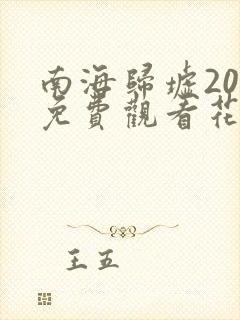 南海歸墟20
免費觀看花
王五